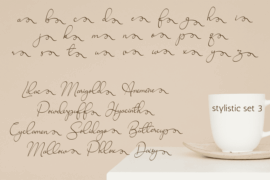 aa ba ca da ea fa ga ha ia
ja ka ma na oa pa qa
ra sa ta ua va wa xa ya za
Lilac Marigold Anemone
Powderpuff Hyacinth
Cyclamen Solidago Buttercup
Mallow Phlox Daisy
stylistic set 3